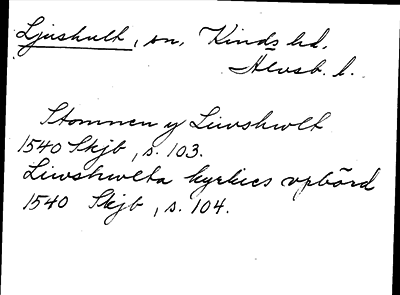 Ljushult, sn, Kinds hd,
Älvsb. l.
Stommen y Liwshwlt
1540 Skjb, s. 103.
Liwshwlta kyrkies vpbörd
1540 Skjb, s. 104.